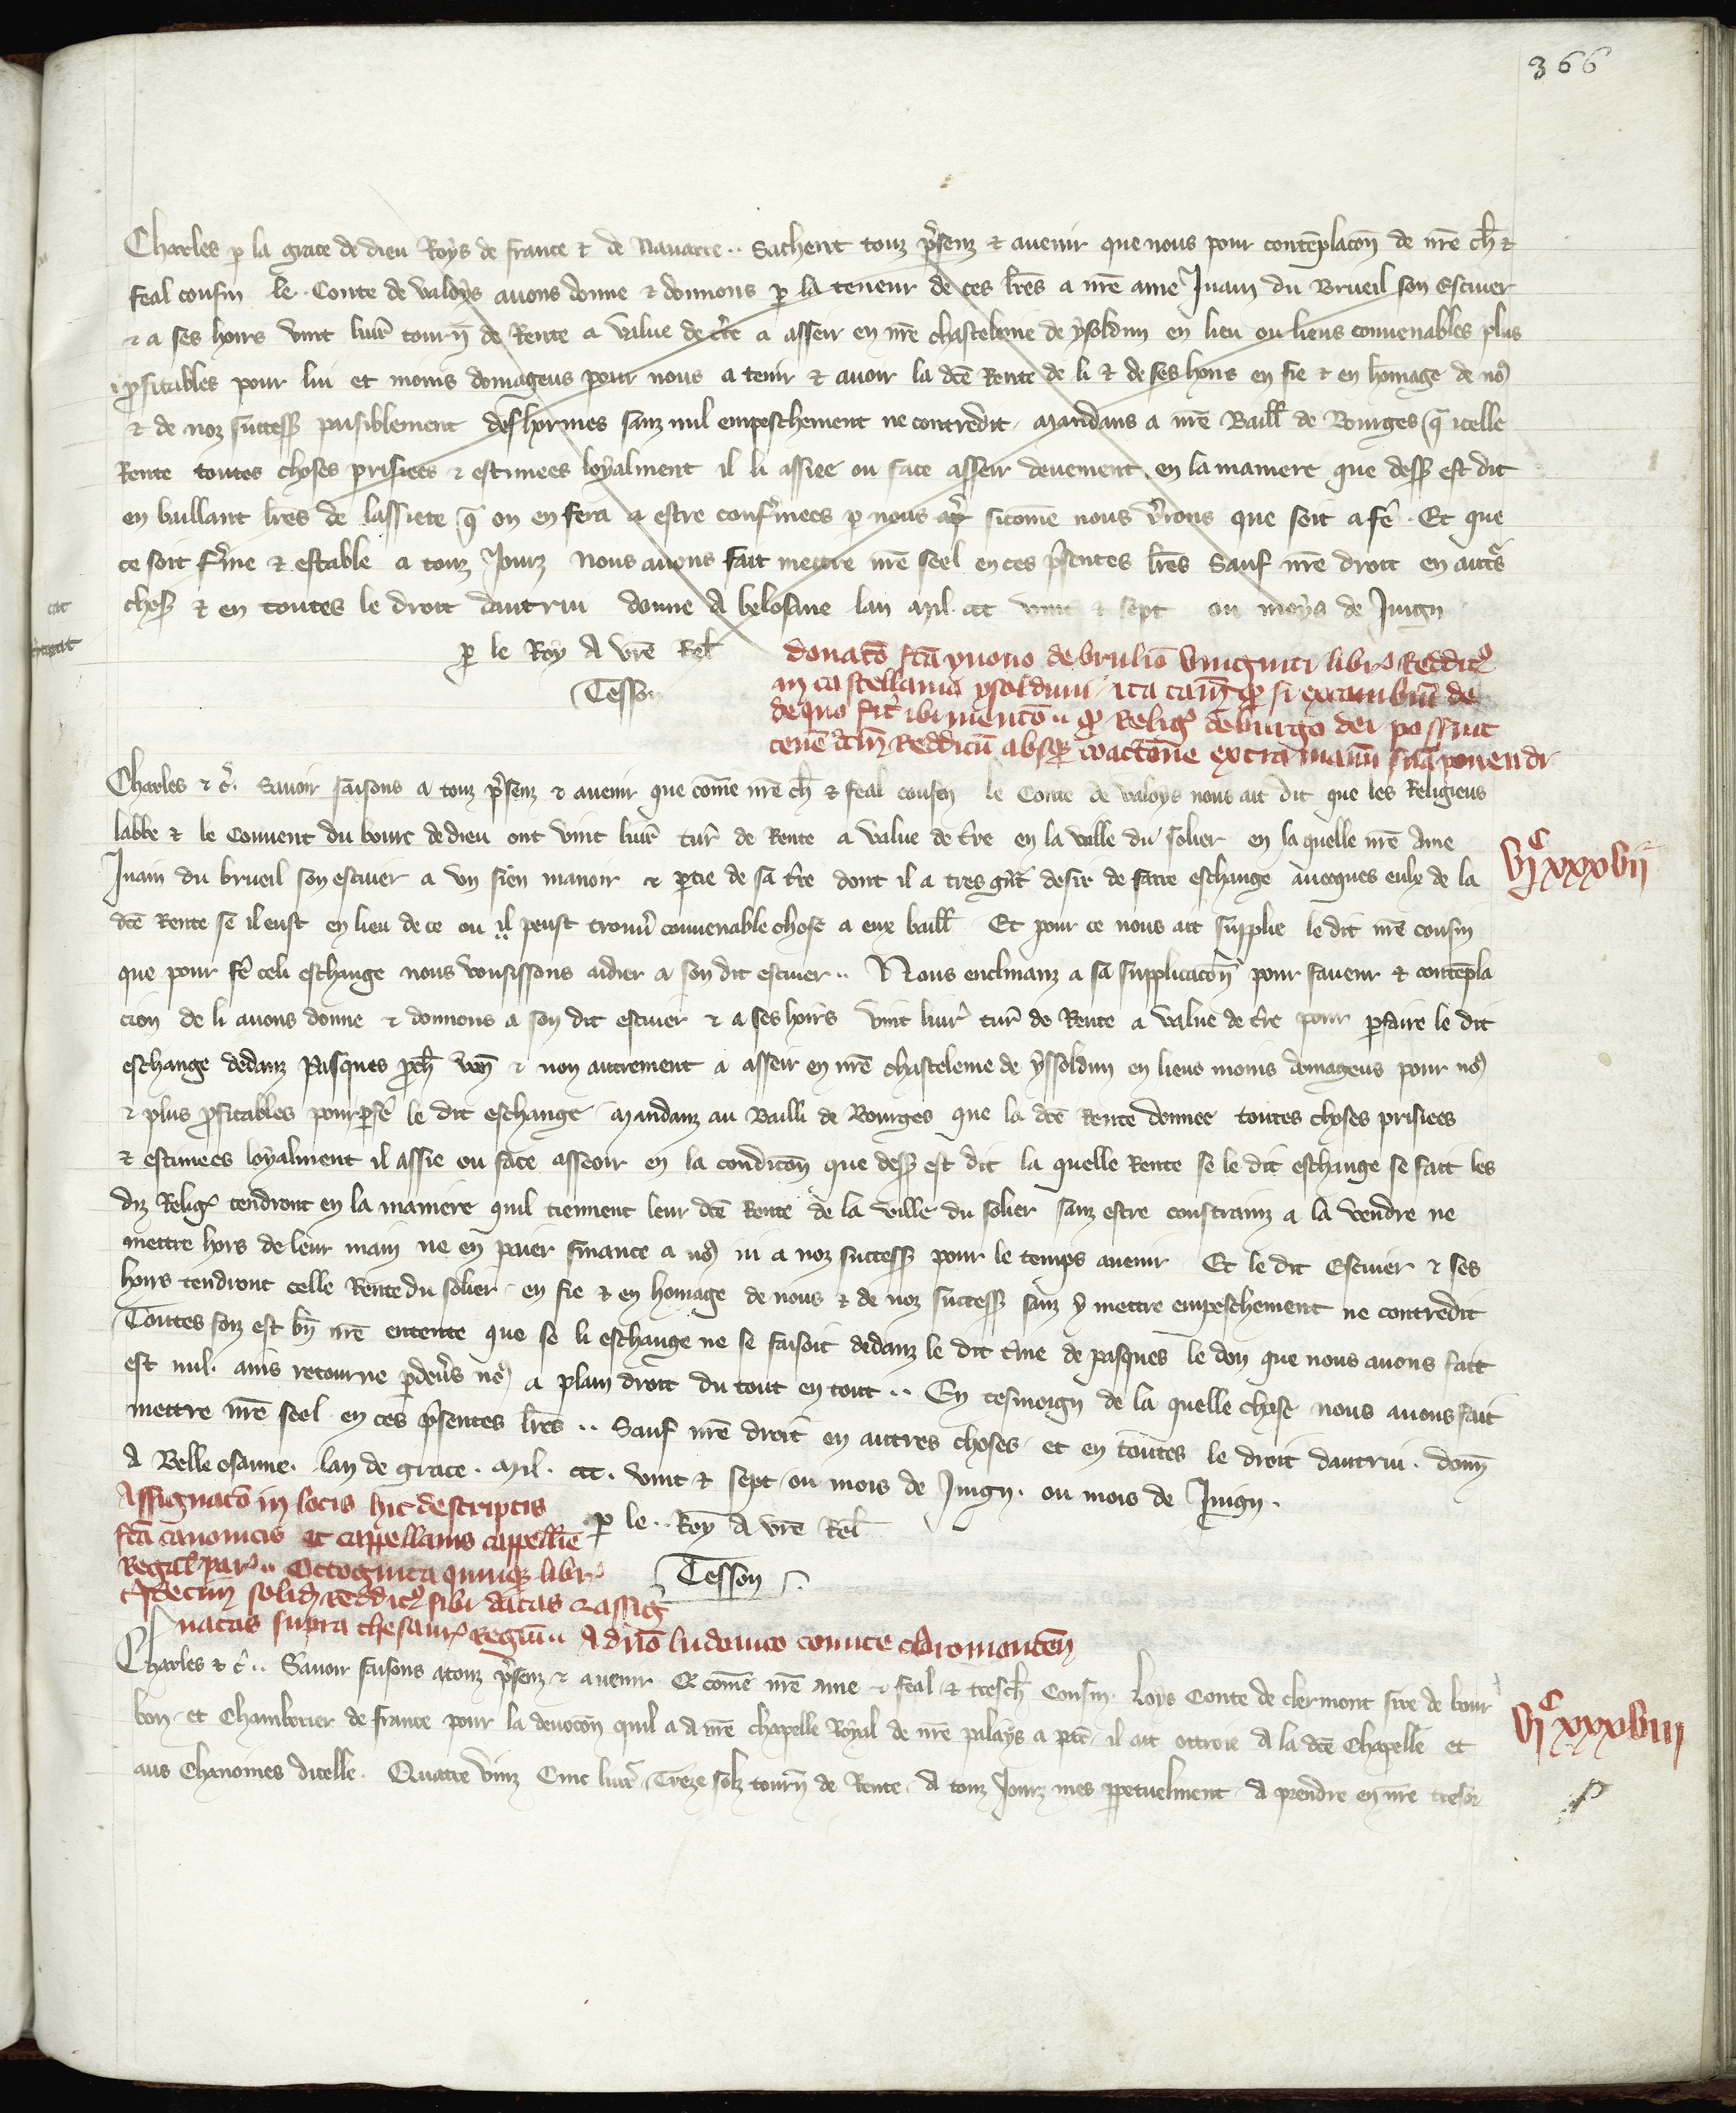 366
Charles p la grace de dieu Roys de france & de Nauarre .. Sachent touz p̃senz & auenir que nous pour contẽplacõn de nr̃e ch̃ &
feal cousin le Conte de valoys auons donne & donnons p la teneur de ces lr̃es a nr̃e ame Juain du Brueil son Escuier
& a ses hoirs vint liur̃ tourñ de Rente a value de tr̃e a asseir en nr̃e chastelenie de ysoldun en lieu ou lieus conuenables plus
p̃fitables pour lui et moins domageus pour nous a tenir & auoir la dc̃e Rente de li & de ses hoirs en fie & en homage de no9
& de noz success̃ paisiblement desormes sanz nul empeschement ne contredit . Mandans a nr̃e Baill̃ de Bourges q̃ icelle
Rente toutes choses prisiees & estimees loyalment il li assiee ou face asseir deuement en la maniere que dess9 est dit
en baillant lr̃es de lassiete q̃ on en fera a estre confr̃mees p nous sicome nous v̾rions que soit a fe̾ . Et que
ce soit fr̃me & estable a touz Jourz nous auons fait mettre nr̃e seel en ces p̃sentes lr̃es Sauf nr̃e droit en autr̃s
chos̃ & en toutes le droit dautrui donne A belosane lan Mil ccc vint & sept ou moys de Juign
p le Roy A vr̃e Rel̃
Tesson
donacõ fc̃a yuono de brulio viuginti libr̃ Reddit9
in castellania ysolduni / ita tam̃ q̾ si excambiũ de
de quo fit ibi mencõ .. q̾ Relig̾ de burgo dei possint
tene̾ dc̃m Redditũ absq̾ coactõne extra manũ suã ponendi
Charles & c̾ . Sauoir faisons a touz p̃senz & auenir que cõme nr̃e ch̃ & feal cousin le Conte de valoys nous ait dit que les Religieus
labbe & le Conuent du bourc de dieu ont vint liur̃ tur̃ de Rente a value de tr̃e en la ville du solier en la quelle nr̃e Ame
Juain du brueil son escuier a vn sien manoir & p̱tie de sa tr̃e dont il a tres gñt desir de faire eschange auecques eulx de la
dc̃e Rente se il eust en lieu de ce ou il peust trouu̾ conuenable chose a eux baill̃ Et pour ce nous ait supplie le dit nr̃e cousin
que pour fe̾ celi eschange nous vousissons aidier a son dit escuier .. Nous enclinanz a sa supplicacõn pour faueur & contẽpla
cion de li auons donne & donnons a son dit escuier & a ses hoirs vint liur̃ tur̃ de Rente a value de tr̃e pour p̱faire le dit
eschange dedanz Pasques p̾ch̃ veñ & non autrement a asseir en nr̃e chastelenie de yssoldun en lieus moins domageus pour no9
& plus p̾fitables pour p̱fe̾ le dit eschange / Mandanz au Bailli de Bourges que la dc̃e Rente donnee toutes choses prisiees
& estimees loyalment il assie ou face asseoir en la condicõn que dess9 est dit la quelle Rente se le dit eschange se fait les
diz Relig̾ tendront en la maniere quil tiennent leur dc̃e Rente de la ville du solier sanz estre constrainz a la vendre ne
mettre hors de leur main ne en paier finance a no9 ni a noz success̃ pour le temps auenir Et le dit Escuier & ses
hoirs tendront celle Rente du solier en fie & en homage de nous & de noz success̃ sanz y mettre empeschement ne contredit
Toutes foiz est bñ nr̃e entente que se li eschange ne se faisoit dedanz le dit tr̃me de pasques le don que nous auons fait
est nul . ains retourne p̱deu̾s no9 a plain droit du tout en tout .. En tesmoign de la quelle chose nous auons fait
mettre nr̃e seel en ces p̃sentes lr̃es .. Sauf nr̃e droit en autres choses et en toutes le droit dautrui . donñ
A Belleosanne . lan de grace . Mil . ccc . vint & sept ou mois de Juign . ou mois de Juign .
p le .. Roy A vr̃e Rel̃
Tesson
vjC xxxvij
Assignacõ in locis hic descriptis
fc̃a canonicis et cappellanis cappellie
Regal̃ par̃ .. Octoginta quinq̾ libr̃
Tredecim solid̃ Reddit9 sibi datas & assig
natas supra thesaur̃ Regiũ .. A dño ludouico comite claromonteñ
Charles & c̾ .. Sauoir faisons a touz p̃senz & auenir Q̃ cõme nr̃e ame & feal & tresch̃ Cousin . Loys Conte de clermont sire de bour
bon et Chamberier de france pour la deuocõn quil a A nr̃e chapelle Royal de nr̃e palays a p̱is il ait ottroie A la dc̃e Chapelle et
aus Chanoines dicelle . Quatre vinz Cinc liur̃ Treze solz tourñ de Rente . A touz Jourz mes p̱petuelment A prendre en nr̃e tresor
vjC xxxviij